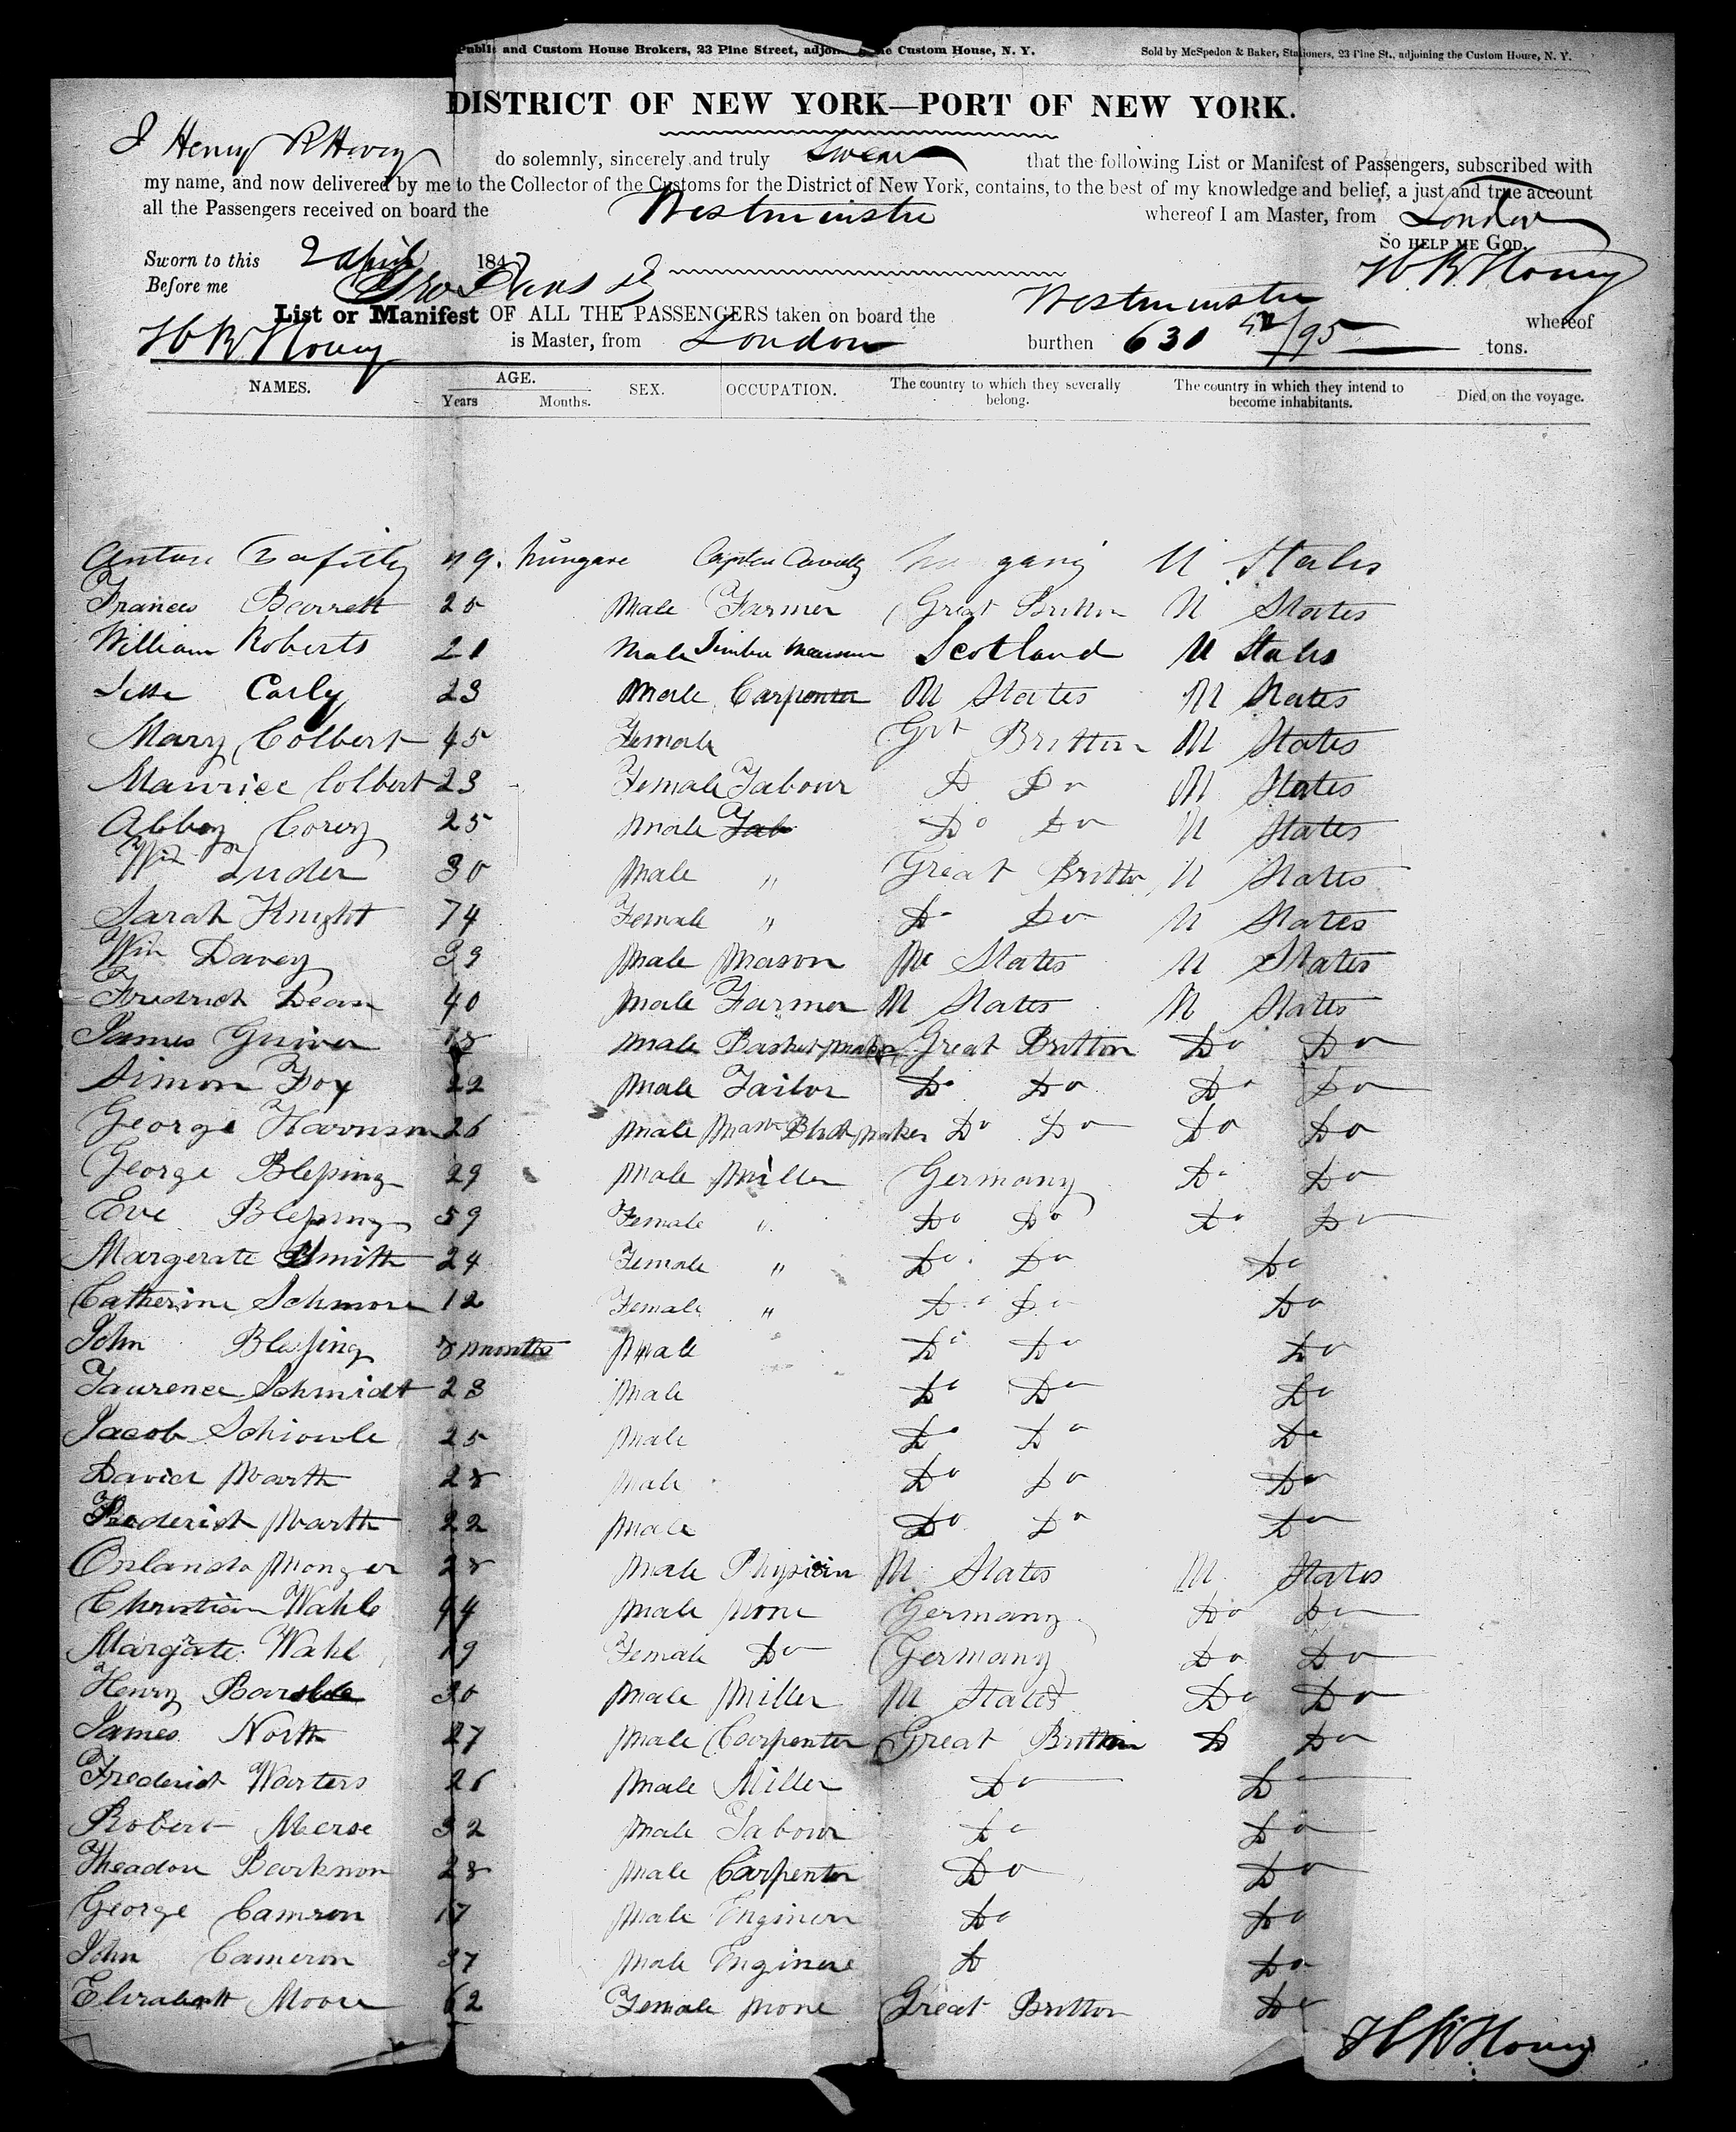 Public and Custom House Brokers, 23 Pine Street, adjoining the Custom House, N. Y. Sold by McSpedon & Baker, Stationers, 23 Pine St., adjoining the Custom House, N. Y.
DISTRICT OF NEW YORK—PORT OF NEW YORK.
I Henry R Hovey do solemnly, sincerely and truly Swear that the following List or Manifest of Passengers, subscribed with
my name, and now delivered by me to the Collector of the Customs for the District of New York, contains, to the best of my knowledge and belief, a just and true account
all the Passengers received on board the Westminster whereof I am Master, from London
So HELP ME GOD.
Sworn to this 2 April 184 H. R. Hovey
Before me
List or Manifest OF ALL THE PASSENGERS taken on board the Westminster whereof
H R Hovey is Master, from London burthen 631 /95 tons.
NAMES. AGE. Years Months. SEX. OCCUPATION. The country to which they severally belong. The country in which they intend to become inhabitants. Died on the voyage.
49. U States
Frances Barrett 20 Male Farmer Great Britton U States
William Roberts 21 Male Scotland U States
Carly 23 Male Carpenter U States U States
Mary Colbert 45 Female Grt Britton U States
Maurice Colbert 23 Female Labour D Do U States
Abbey Corey 25 Male Lab Do Do U States
Wm Luder 30 Male " Great Britto U States
Sarah Knight 74 Female " Do Do U States
Wm Davey 39 Male Mason U States U States
Fredrick Dean 40 Male Farmer U States U States
James 18 Male Basket maker Great Britton Do Do
Simon Foy 22 Male Tailor Do Do Do Do
George Harrison 26 Male maker Do Do Do Do
George Blessing 29 Male Miller Germany Do Do
Eve Blessing 59 Female " Do Do Do Do
Margerate Smith 24 Female " Do Do Do
Catherine Schmore 12 Female " Do Do Do
John Blessing 8 months Male Do Do Do
Laurence Schmidt 23 Male Do Do Do
Jacob 25 Male Do Do Do
David Warth 28 Male Do Do Do
Frederick Warth 22 Male Do Do Do
Orlando Monger 28 Male Physician U States U States
Christian Wahle 44 Male None Germany Do Do
Margate Wahl 19 Female Do Germany Do Do
Henry 30 Male Miller U States Do Do
James North 27 Male Carpenter Great Brittain D Do
Frederick Warters 26 Male Miller Do Do
Robert Merse 32 Male Labour Do Do
Theadore Barkman 28 Male Carpenter Do Do
George Camron 17 Male Enginere Do Do
John Cameron 37 Male Enginere D Do
Elizabeth Moore 62 Female None Great Britton Do
H R Hovey